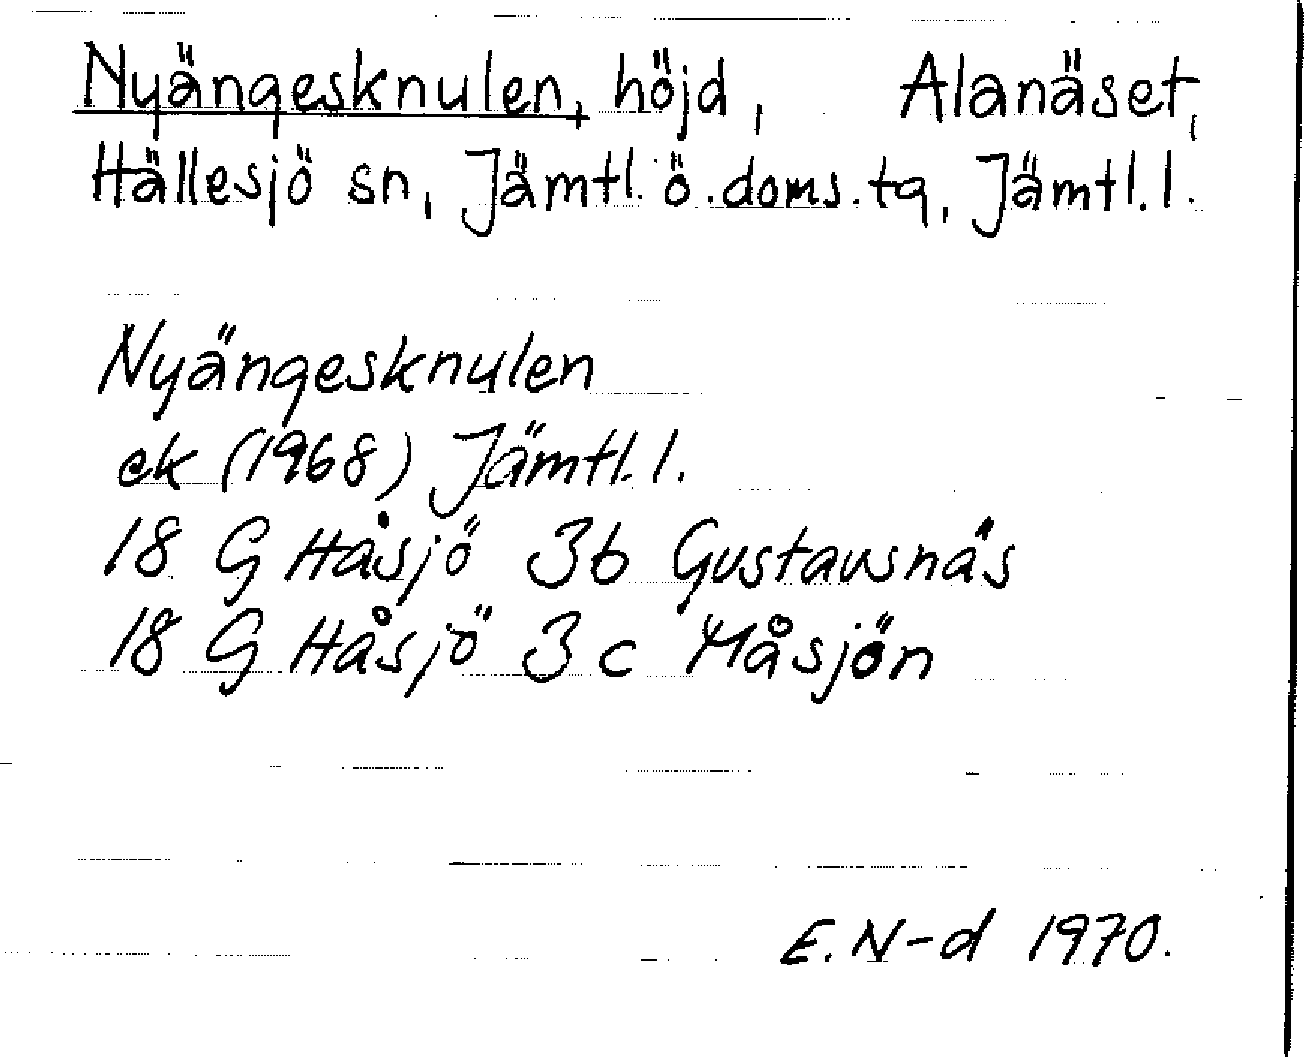 Nyängesknulen, höjd, Alanäset,
Hällesjö sn, Jämtl. ö. doms. tg, Jämtl. l.
Nyängesknulen
ek (1968) Jämtl. l.
18 G Håsjö 3b Gustavsnäs
18 G Håsjö 3c Måsjön
E. N-d 1970.